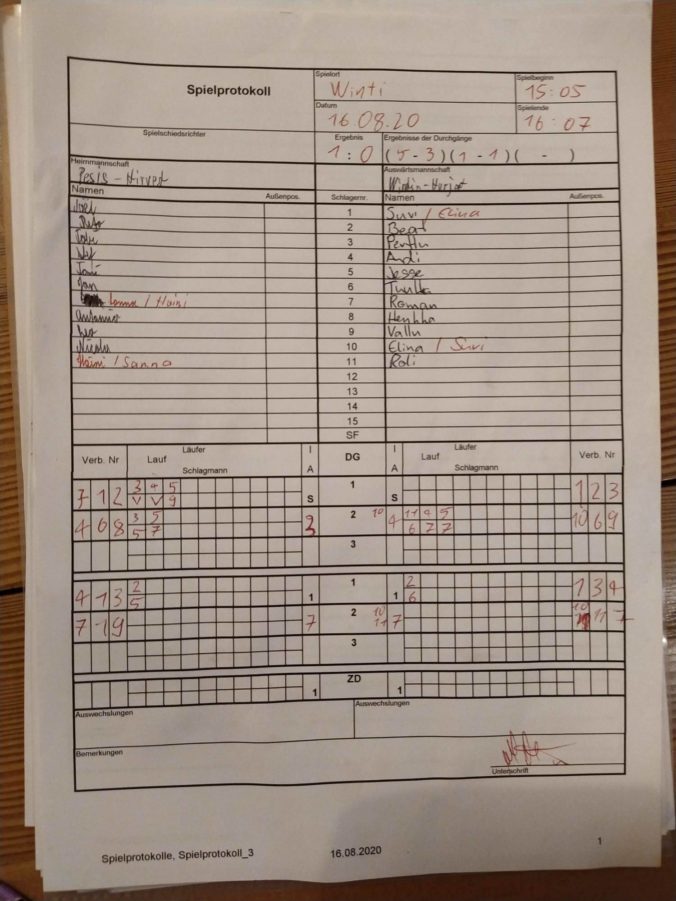 Spielprotokoll
Spielort
Winti
Spielbeginn
15:05
Datum
16.08.20
Spielende
16:07
Spielschiedsrichter
Ergebnis
1:0
Ergebnisse der Durchgänge
(5-3)(1-1)( - )
Heimmannschaft
Pesis-Hirvet
Auswärtsmannschaft
Namen Außenpos. Schlagernr. Namen Außenpos.
1 Suvi / Elina
2 Beat
3 Perttu
4 Andi
5 Jesse
Jan 6
/ Haini 7 Roman
8
9 Vallu
Nicola 10 Elina / Suvi
/ Sanna 11 Roli
12
13
14
15
SF
Verb. Nr Lauf Läufer Schlagmann I A DG I A Lauf Läufer Schlagmann Verb. Nr
7 1 2 3 4 5 V V 9 S 1 S 1 2 3
4 6 8 3 5 5 7 3 2 10 4 11 4 5 6 7 7 10 6 9
3
4 1 3 2 5 1 1 1 2 6 1 3 4
7 1 9 7 2 10 11 7 10 11 7
3
1 ZD 1
Auswechslungen Auswechslungen
Bemerkungen
Unterschrift
Spielprotokolle, Spielprotokoll_3 16.08.2020 1